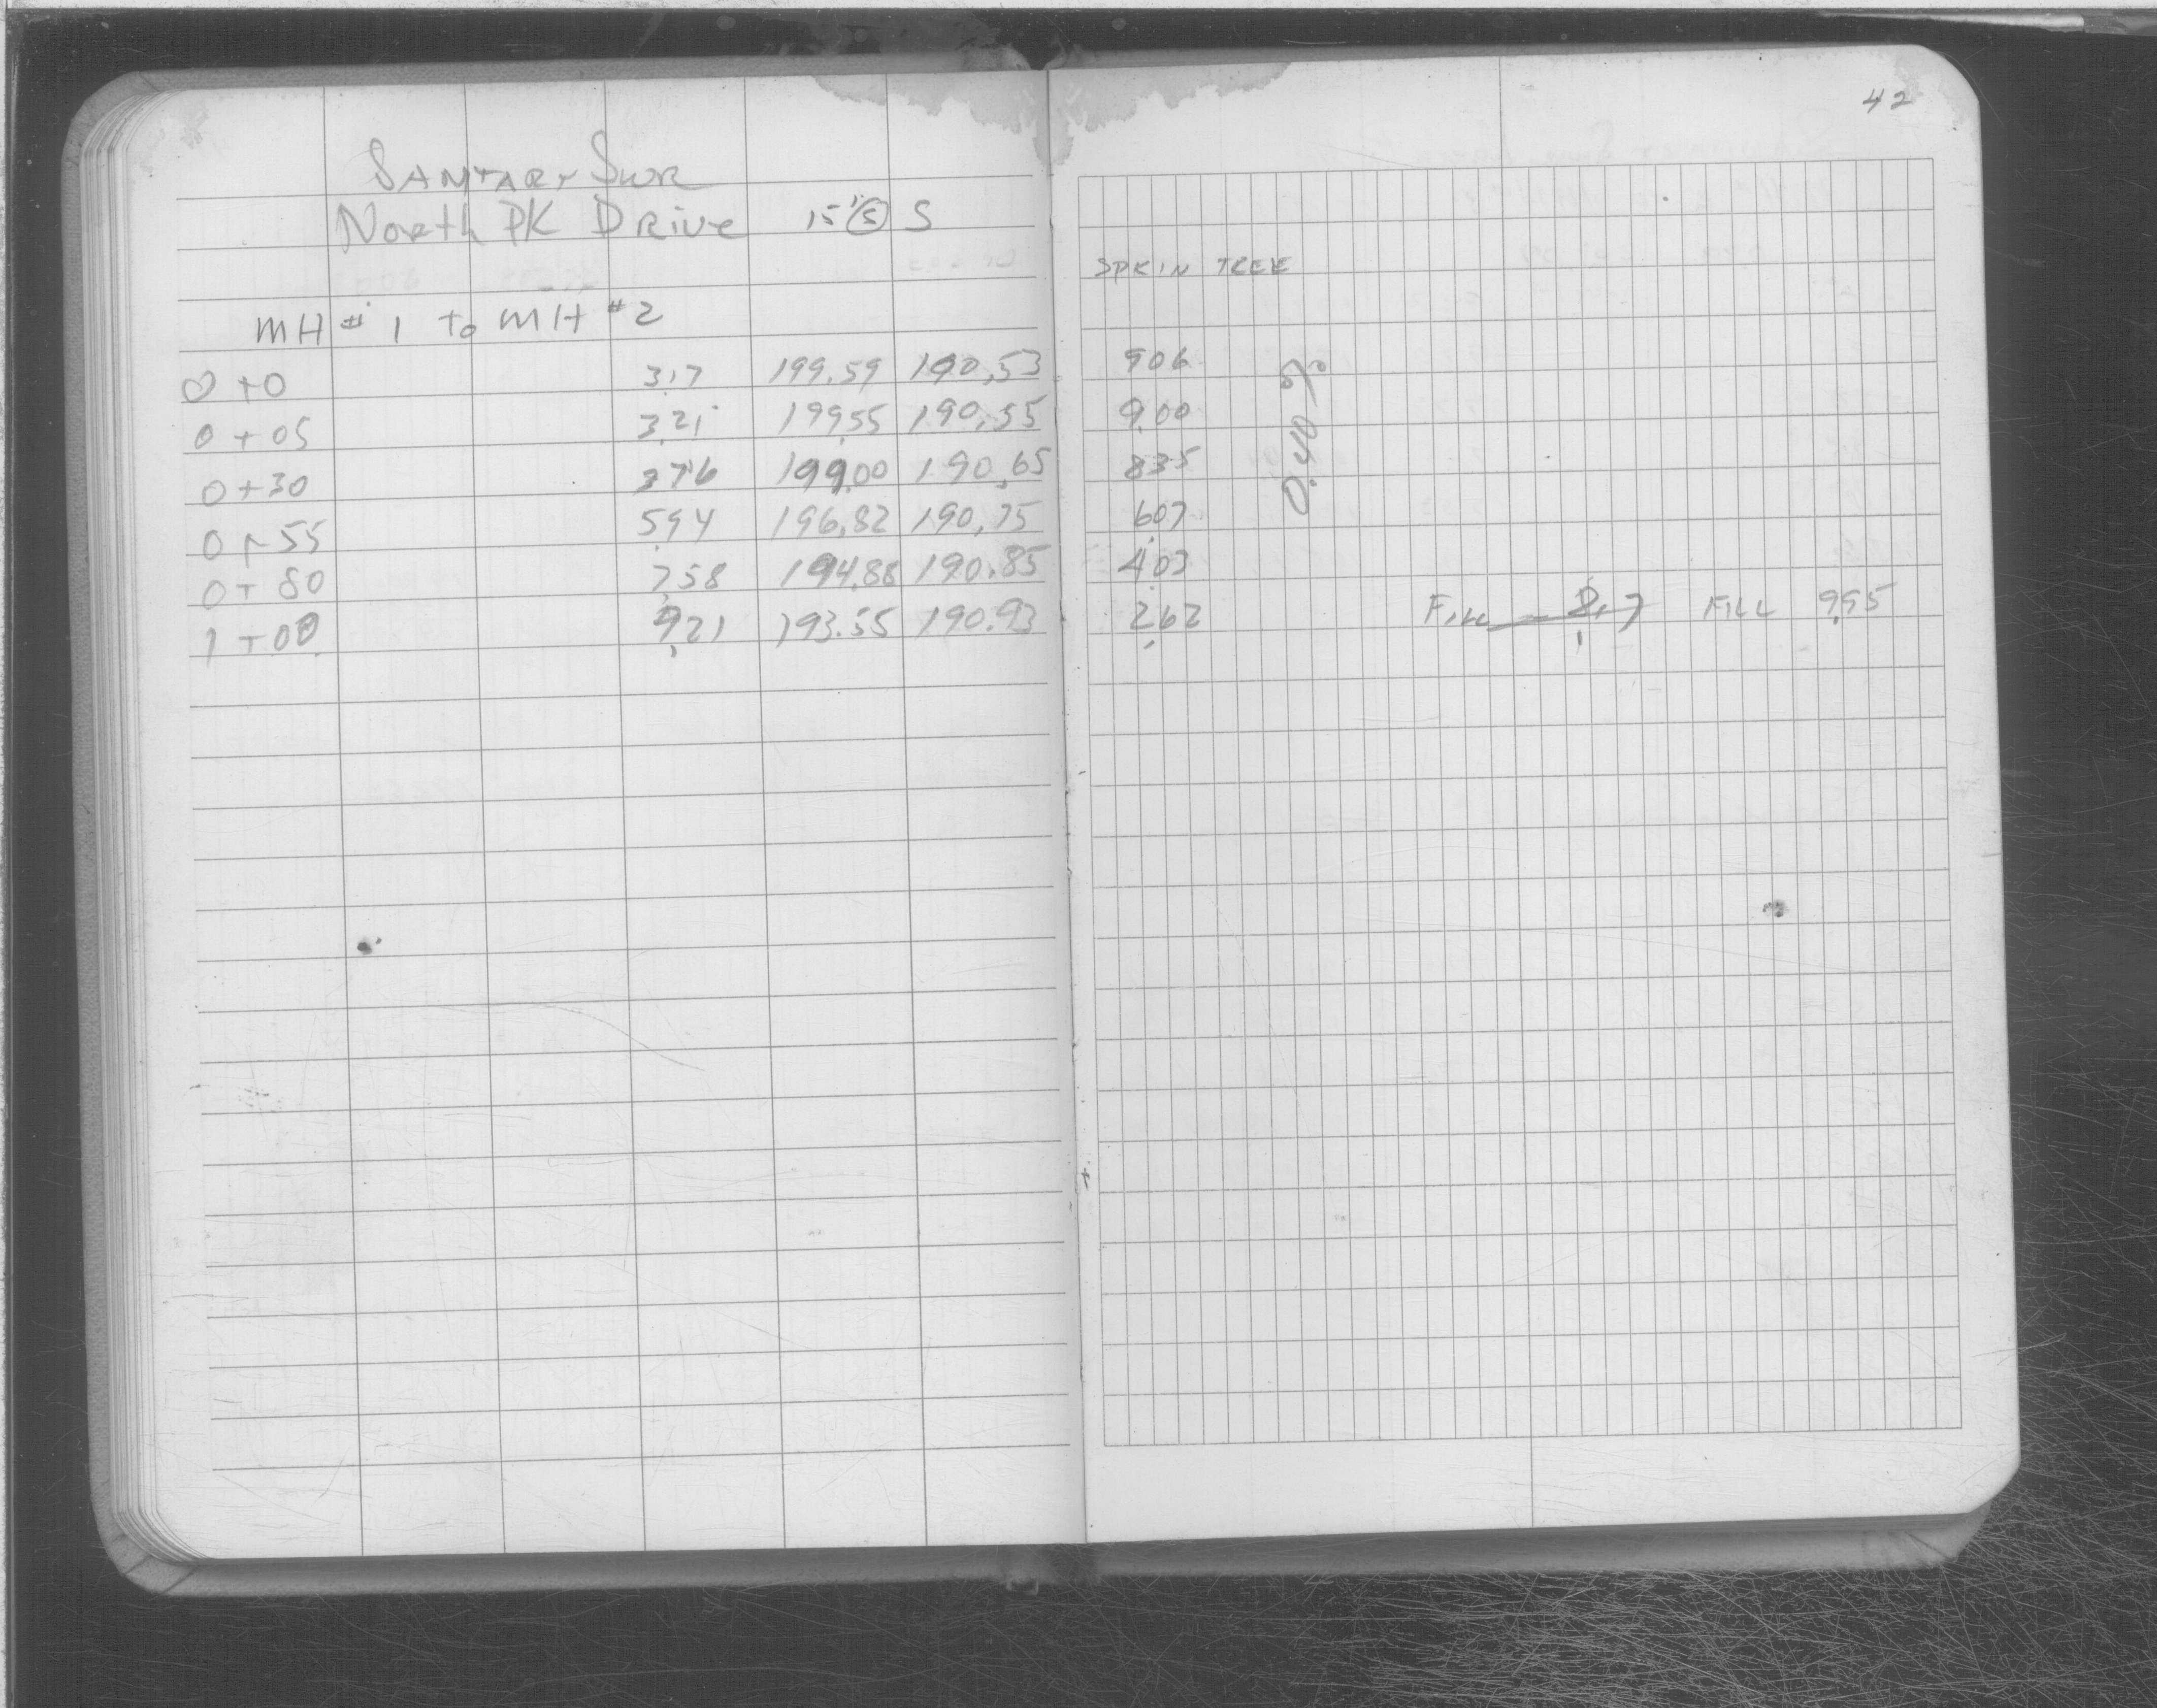 42
SANITARY SWR
North PK Drive 15' Ⓢ S
SPK IN TREE
MH # 1 to MH #2
0+0 3.17 199.59 190.53 906
0+05 3.21 199.55 190.55 9.00
0+30 376 199.00 190.65 835
0+55 5.94 196.82 190.75 6.07
0+80 7.58 194.88 190.85 4.03
1+00 9.21 193.55 190.93 2.62 FILL 9.95
0.40 %